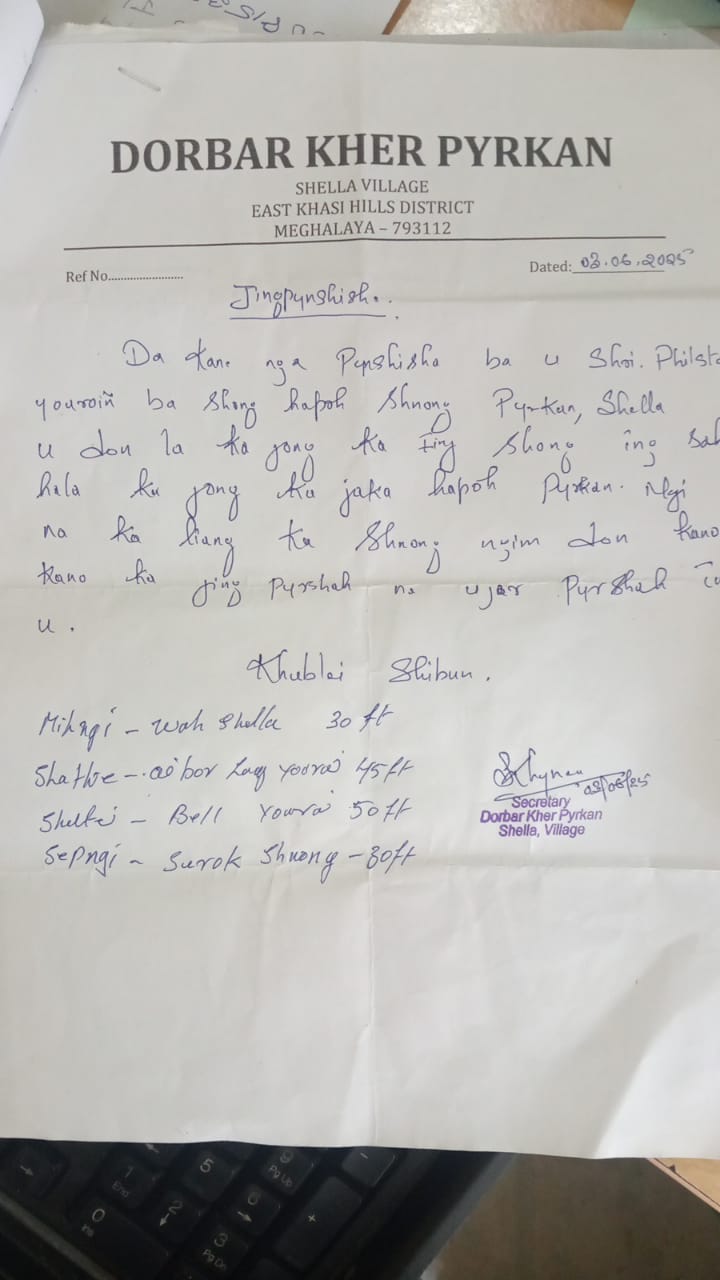 DORBAR KHER PYRKAN
SHELLA VILLAGE
EAST KHASI HILLS DISTRICT
MEGHALAYA – 793112
Ref No........................
Dated: 03.06.2025
Jingpynshish.
Da Kane nga Pynshisha ba u Shri. Philsta
youroiñ ba Shong hapoh Shnong Pyrkan, Shella
u don la ka jong ka jing Shong ïng sah
hala ka jong ka jaka hapoh Pyrkan. Ngi
na ka liang ka Shnong ngim don kano
kano ka jing Pyrshah ne ujar Pyrshah ïa
u.
Khublei Shibun.
Mihngi – Wah Shella 30 ft
Shathie – Yoora 45ft
Shatei – Bell Yoora 50ft
Sepngi – Surok Shnong – 30ft
03/06/25
Secretary
Dorbar Kher Pyrkan
Shella, Village
1
End
2
3
Pg Dn
5
6
9
Pg Up
0
Ins
+
-